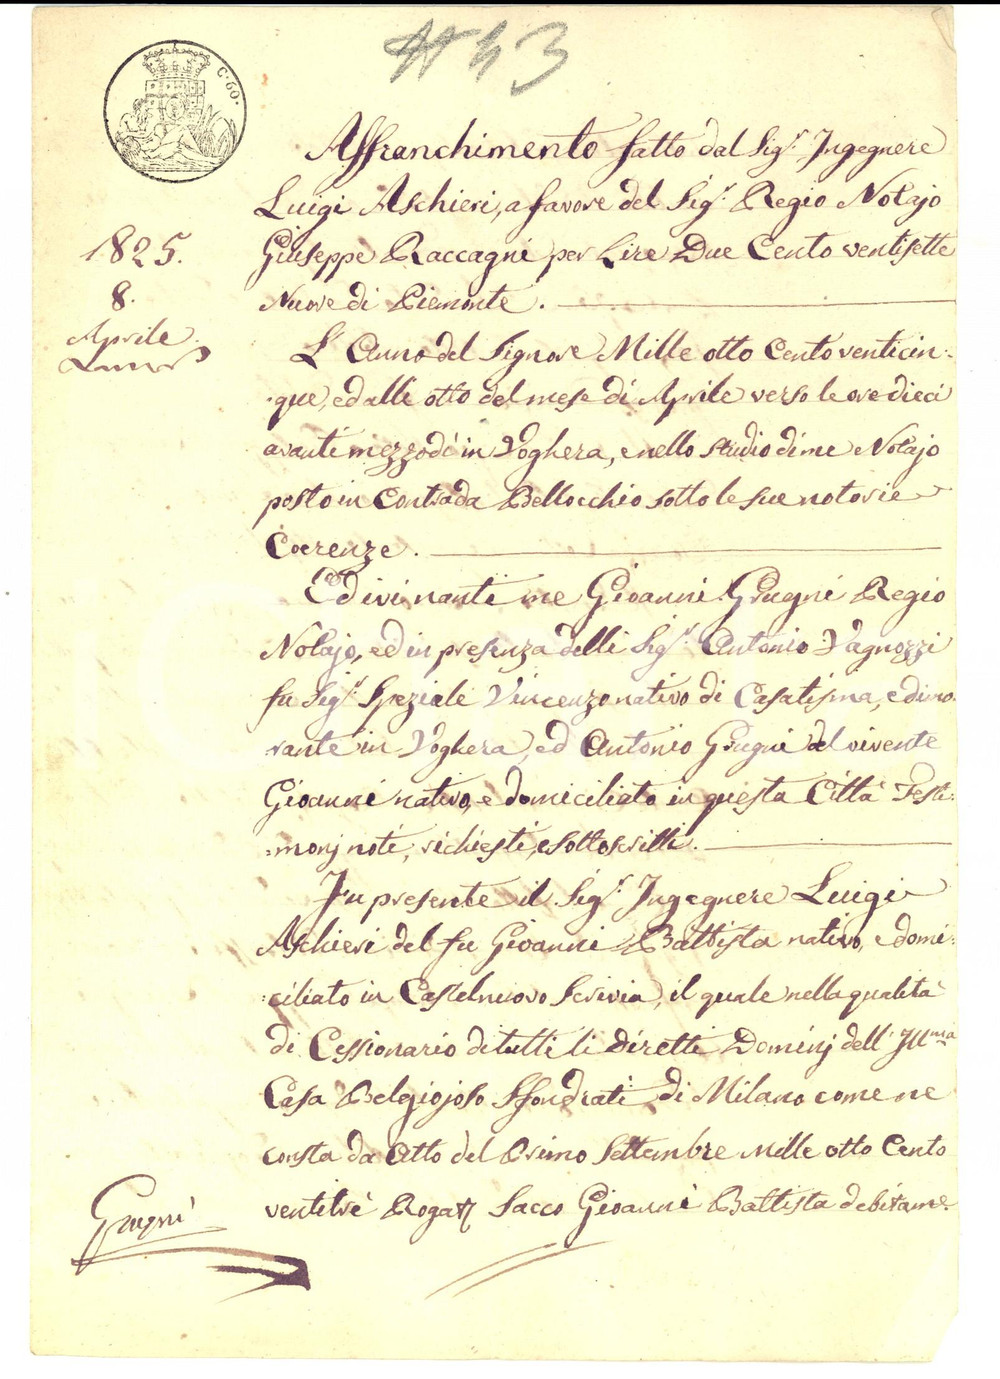 # 43
C. 60.
Affranchimento fatto dal Sig.r Ingegnere
Luigi Aschieri, a favore del Sig.r Regio Notajo
Giuseppe Raccagni per Lire Due Cento ventisette
Nuove di Piemonte.
1825.
8.
Aprile
L'Anno del Signore Mille otto Cento venticin:
:que, ed alli otto del mese di Aprile verso le ore dieci
avanti mezzodì in Voghera, e nello studio di me Notajo
posto in Contrada Bellocchio sotto le sue notorie
Coerenze.
Ed ivi nanti me Gioanni Grugni Regio
Notajo, ed in presenza delli Sig.ri Antonio Vagnozzi
fu Sig.r Speziale Vincenzo nativo di Casatisma, e dimo:
rante in Voghera, ed Antonio Grugni del vivente
Gioanni nativo, e domiciliato in questa Città Testi:
:monj noti, richiesti, e sottoscritti.
Fu presente il Sig.r Ingegnere Luigi
Aschieri del fu Gioanni Battista nativo, e domi:
:ciliato in Castelnuovo Scrivia, il quale nella qualità
di Cessionario di tutti li diretti Dominj dell' Ill.ma
Casa Belgiojoso Sfondrati di Milano come ne
consta da Atto del Primo Settembre Mille otto Cento
ventitrè Rogato Sacco Gioanni Battista debitame:
Grugni